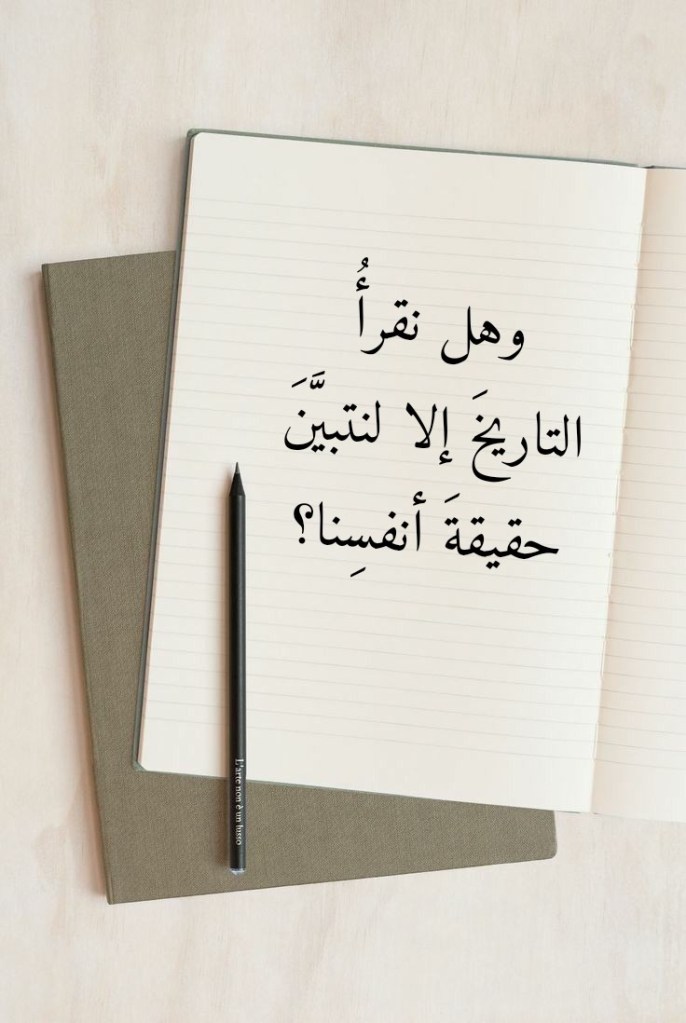 وهل نقرأُ
التاريخَ إلا لنتبيَّنَ
حقيقةَ أنفسِنا؟
L'arte non è un lusso